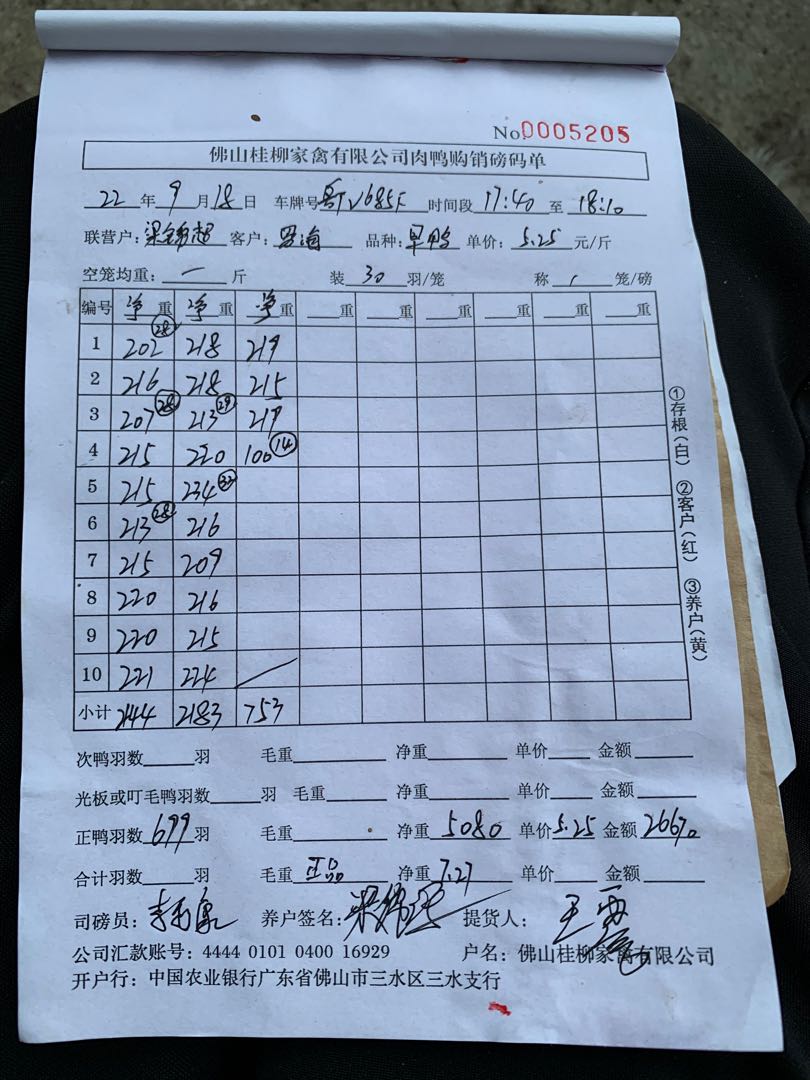 No.0005205
佛山桂柳家禽有限公司肉鸭购销磅码单
22年9月18日 车牌号粤TV685F 时间段17:40至18:10
联营户:梁锦超 客户: 品种:旱鸭 单价:5.25元/斤
空笼均重:一斤 装30羽/笼 称1笼/磅
编号 净重 净重 净重 重 重 重 重 重 重
1 202 28 218 219
2 216 218 215
3 207 28 213 29 219
4 215 220 100 14
5 215 234 32
6 213 28 216
7 215 209
8 220 216
9 220 215
10 221 224
小计 2144 2183 753
①存根(白) ②客户(红) ③养户(黄)
次鸭羽数羽 毛重 净重 单价 金额
光板或叮毛鸭羽数羽 毛重 净重 单价 金额
正鸭羽数699羽 毛重 净重5080 单价5.25 金额26670
合计羽数羽 毛重正品 净重7.27 单价 金额
司磅员: 养户签名: 提货人:
公司汇款账号:4444 0101 0400 16929 户名:佛山桂柳家禽有限公司
开户行:中国农业银行广东省佛山市三水区三水支行